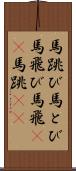 馬跳び馬とび
馬飛び馬飛
馬跳